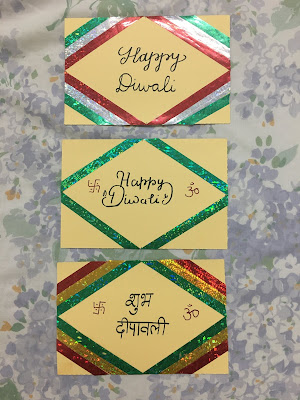 Happy
Diwali
Happy
卐 Diwali ॐ
शुभ
卐 दीपावली ॐ